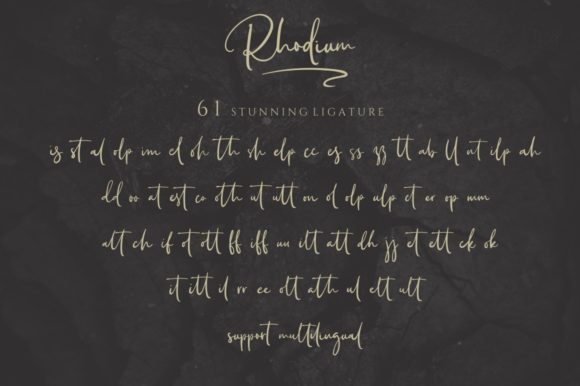 Rhodium
61 STUNNING LIGATURE
is st al olp im el oh th sh elp cc es ss zz tt ab ll nt ilp ah
dd oo at est co oth ut utt on ol olp ulp ct er op mm
alt ch if ot ott ff iff uu ilt att dh jj et ett ck ok
it itt il rr ee olt ath ul elt ult
support multilingual